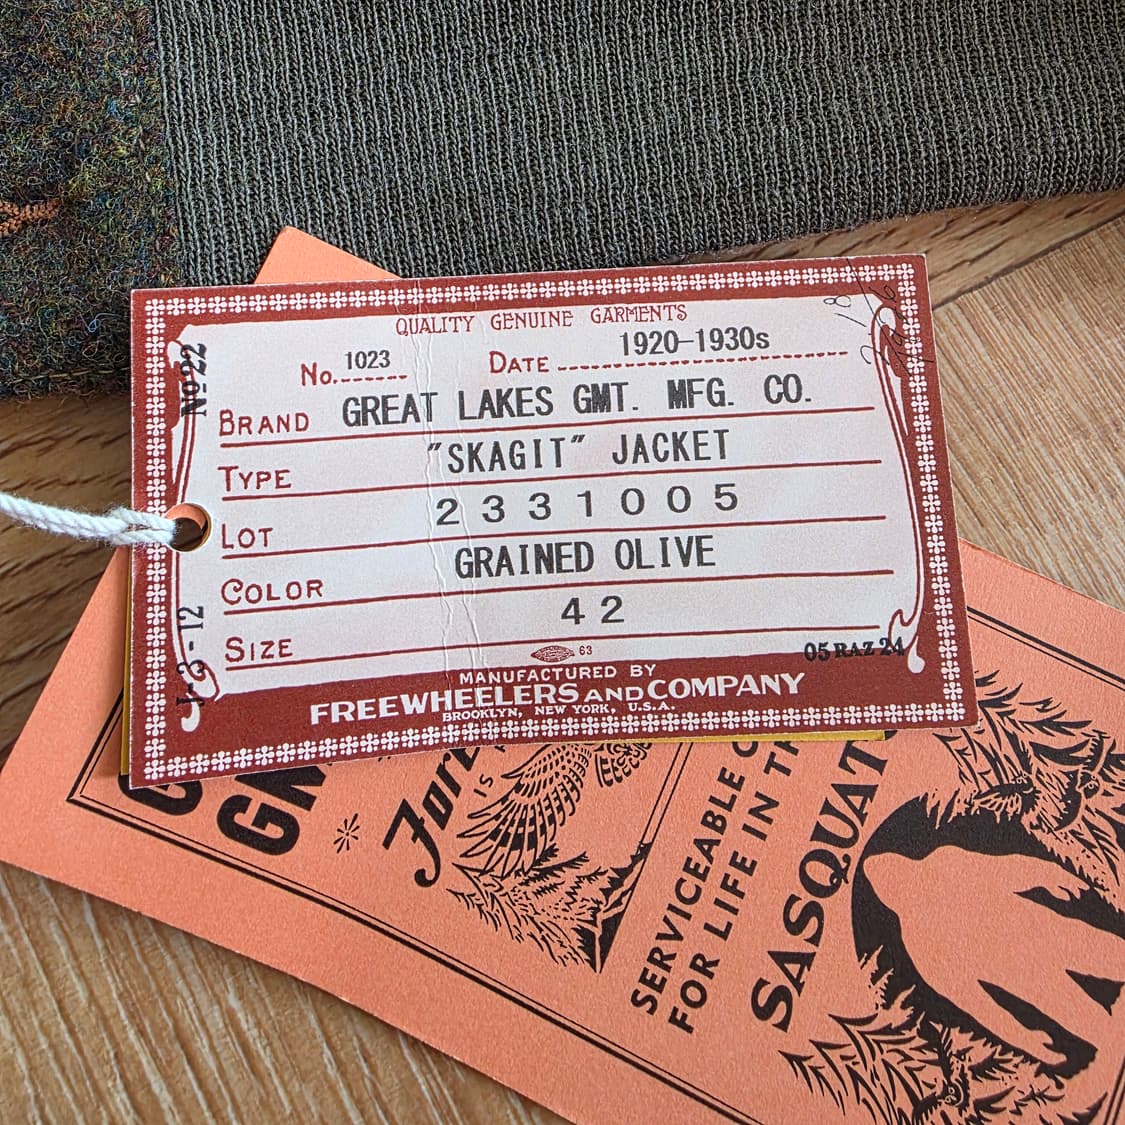 QUALITY GENUINE GARMENTS
No. 1023 DATE 1920-1930s
BRAND GREAT LAKES GMT. MFG. CO.
TYPE "SKAGIT" JACKET
LOT 2331005
COLOR GRAINED OLIVE
SIZE 42
63
05 RAZ 24
MANUFACTURED BY
FREEWHEELERS AND COMPANY
BROOKLYN, NEW YORK, U.S.A.
No 22
J-3-12
IS
SERVICEABLE
FOR LIFE IN